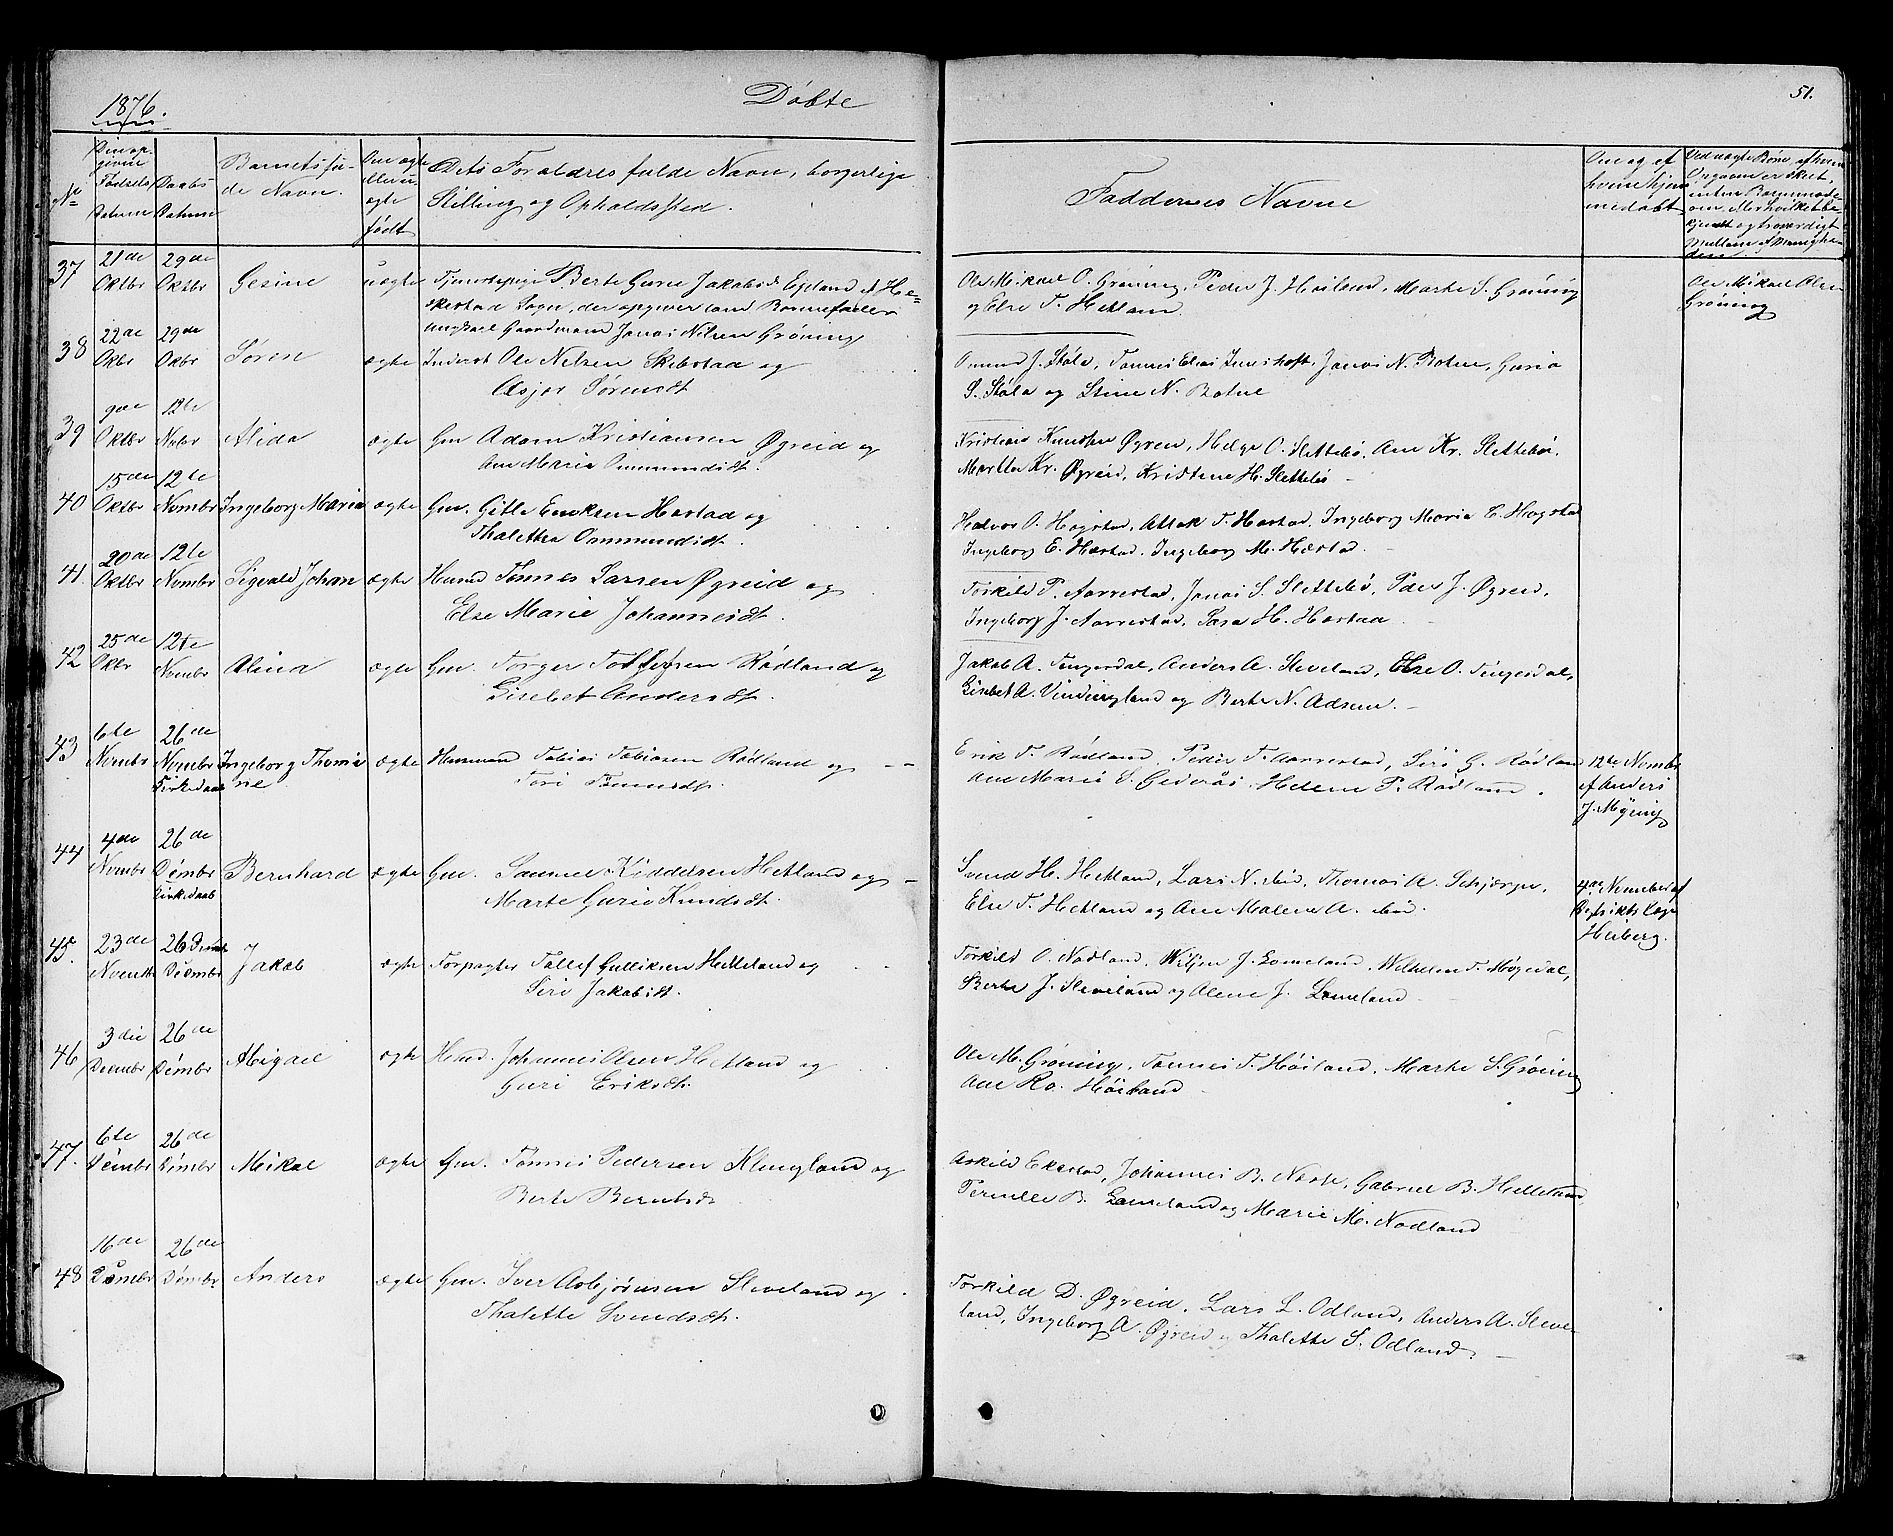 1876.
Døbte
51.
No
Den op-
givne
Fødsels
Datum
Daabs
Datum
Barnets fu-
de Navn.
Om ægte
eller u-
ægte
født
Dets Forældres fulde Navn, borgerlige
Stilling og Opholdssted.
Faddernes Navne
Om og af
hvem hjem-
medøbt
37
21de
Oktbr
29de
Oktbr
Gesine
uægte
Tjenestepige Berte Gurie Jakobsdt Egeland af He-
skestad Sogn, der opgiver som Barnefader
ungkarl Gaardmand Jonas Nilsen Grøning
Ole Mikael O. Grøning, Peder J. Høiland, Marte S. Grøning
og Else T. Hetland.
Ole Mikael Olsen
Grøning
38
22de
Okbr
29de
Okbr
Søren
ægte
Inderst Ole Nilsen Skibstad og
Asjør Sørensdt
Omund J. Støle, Tønnes Elias, Jonas N. Botne, Guria
S. Støle og Stine N. Botne
39
9de
Oktbr
12te
Nobr
Alida
ægte
Gm Adam Kristiansen Øgreid og
Ane Marie Ommundsdt.
Kristian Knudsen Øgreid, Helge O. Slettebø, Ane Kr. Slettebø,
Martha Kr. Øgreid, Kristine H. Slettebø
40
15de
Oktbr
12te
Novmbr
Ingeborg Marie
ægte
Gm. Gitle Eriksen Hæstad og
Thalette Ommundsdt.
Halvor O. Høgstad, Atlak T. Hæstad, Ingeborg Maria E. Høgstad
Ingeborg E. Hæstad, Ingeborg M. Hæstad.
41.
20de
Oktbr
12te
Novmbr
Sigvald Johan
ægte
Husmd Tønnes Larsen Øgreid og
Else Marie Johannesdt.
Torkild P. Aarrestad, Jonas S. Slettebø, Peder J. Øgreid,
Ingeborg J. Aarrestad, Sara H. Hæstad
42
25de
Okbr
12te
Novmbr
Alina
ægte
Gm. Torger Rødland og
Lisebet Andersdt.
Jakob A. Tengesdal, Anders A. Sleveland, Else O. Tengesdal,
Lisbet A. Vindingland og Berte N. Adsen.
43
6te
Novmbr
26de
Novmbr
Kirkedaab
Ingeborg Thomi-
ne
ægte
Husmand Tobias Tobiasen Rødland og
Tori Tønnesdt.
Erik T. Rødland, Peder T. Aarrestad, Siri G. Rødland
Ane Marie S. Gederås, Helene P. Rødland.
12te Novmbr
af Anders
J. Myning
44
4de
Novmbr
26de
Desmbr
Kirkedaab
Bernhard
ægte
Gm. Samuel Kiddelsen Hetland og
Marte Gurie Knudsdt.
Svend H. Hetland, Lars N. Lid, Thomas A. Schjerpe,
Else T. Hetland og Ane Malene A. Lid.
4de Novmber af
Distriktslæge
Heiberg.
45.
23de
Novmbr
26 Desmbr
Jakob
ægte
Forpagter Tollef Gulliksen Helleland og
Siri Jakobsdt.
Torkild O. Nodland, Wiljen J. Lomeland, Wilhelm T. Møgedal,
Berte J. Sleveland og Alene J. Lomeland
46
3die
Desmbr
26de
Desmbr
Abigael
ægte
Husmd. Johannes Olsen Hetland og
Guri Eriksdt.
Ole M. Grøning, Tønnes T. Høiland, Marte S. Grøning
Ane Ra. Høiland
47.
6te
Desmbr
26de
Desmbr
Mikal
ægte
Gm. Tønnes Pedersen Klungland og
Berte Berntsdt
Askild Ekestad, Johannes B. Næste, Gabriel B. Helleland
Pernille B. Lomeland og Marie M. Nodland
48
16de
Desmbr
26de
Desmbr
Anders
ægte
Gm. Iver Asbjørnsen Sleveland og
Thalette Svendsdt.
Torkild D. Øgreid, Lars L. Odland, Anders A. Sleve-
land, Ingeborg A. Øgreid og Thalette S. Odland.